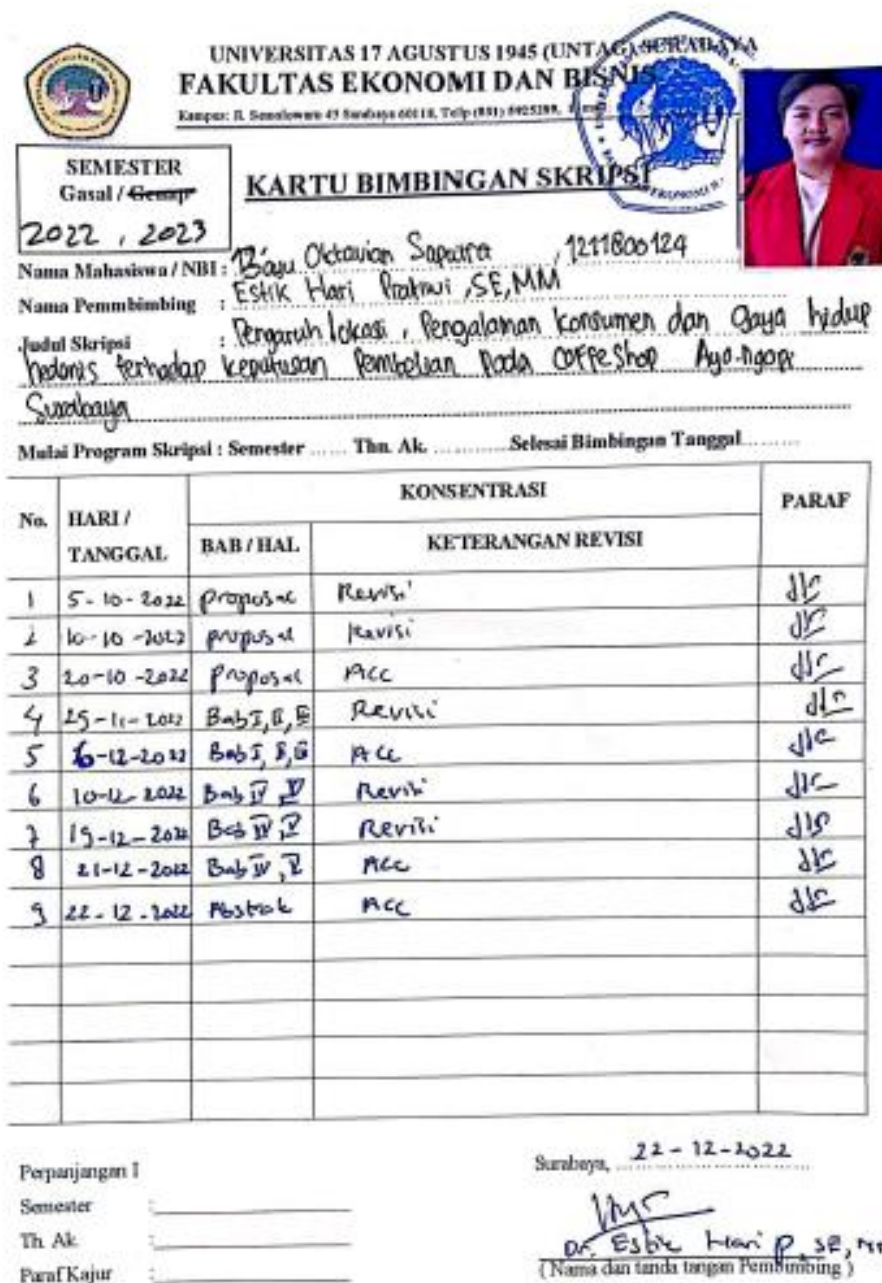 UNIVERSITAS 17 AGUSTUS 1945 (UNTAG) SURABAYA
FAKULTAS EKONOMI DAN BISNIS
Kampus: Jl. Semolowaru 45 Surabaya 60118, Telp (031) 5925289,
SEMESTER
Gasal / Genap
2022 , 2023
KARTU BIMBINGAN SKRIPSI
Nama Mahasiswa / NBI : Bayu Oktavian Saputra , 1211800124
Nama Pemmbimbing : Estik Hari Pratiwi ,SE,MM
Judul Skripsi : Pengaruh lokasi , Pengalaman konsumen dan Gaya hidup
hedonis terhadap keputusan Pembelian Pada Coffe Shop Ayo-Ngopi
Surabaya
Mulai Program Skripsi : Semester ...... Thn. Ak. ............ Selesai Bimbingan Tanggal.........
No. HARI / TANGGAL KONSENTRASI PARAF
BAB / HAL KETERANGAN REVISI
1 5-10-2022 proposal Revisi
2 10-10-2022 proposal Revisi
3 20-10-2022 Proposal ACC
4 25-11-2022 Bab I, II, III Revisi
5 6-12-2022 Bab I, II, III ACC
6 10-12-2022 Bab IV, V Revisi
7 19-12-2022 Bab IV, V Revisi
8 21-12-2022 Bab IV, V ACC
9 22-12-2022 Abstrak ACC
Perpanjangan I
Semester :
Th. Ak :
Paraf Kajur :
Surabaya, 22-12-2022
Dr. Estik Hari P, SE,
( Nama dan tanda tangan Pembimbing )